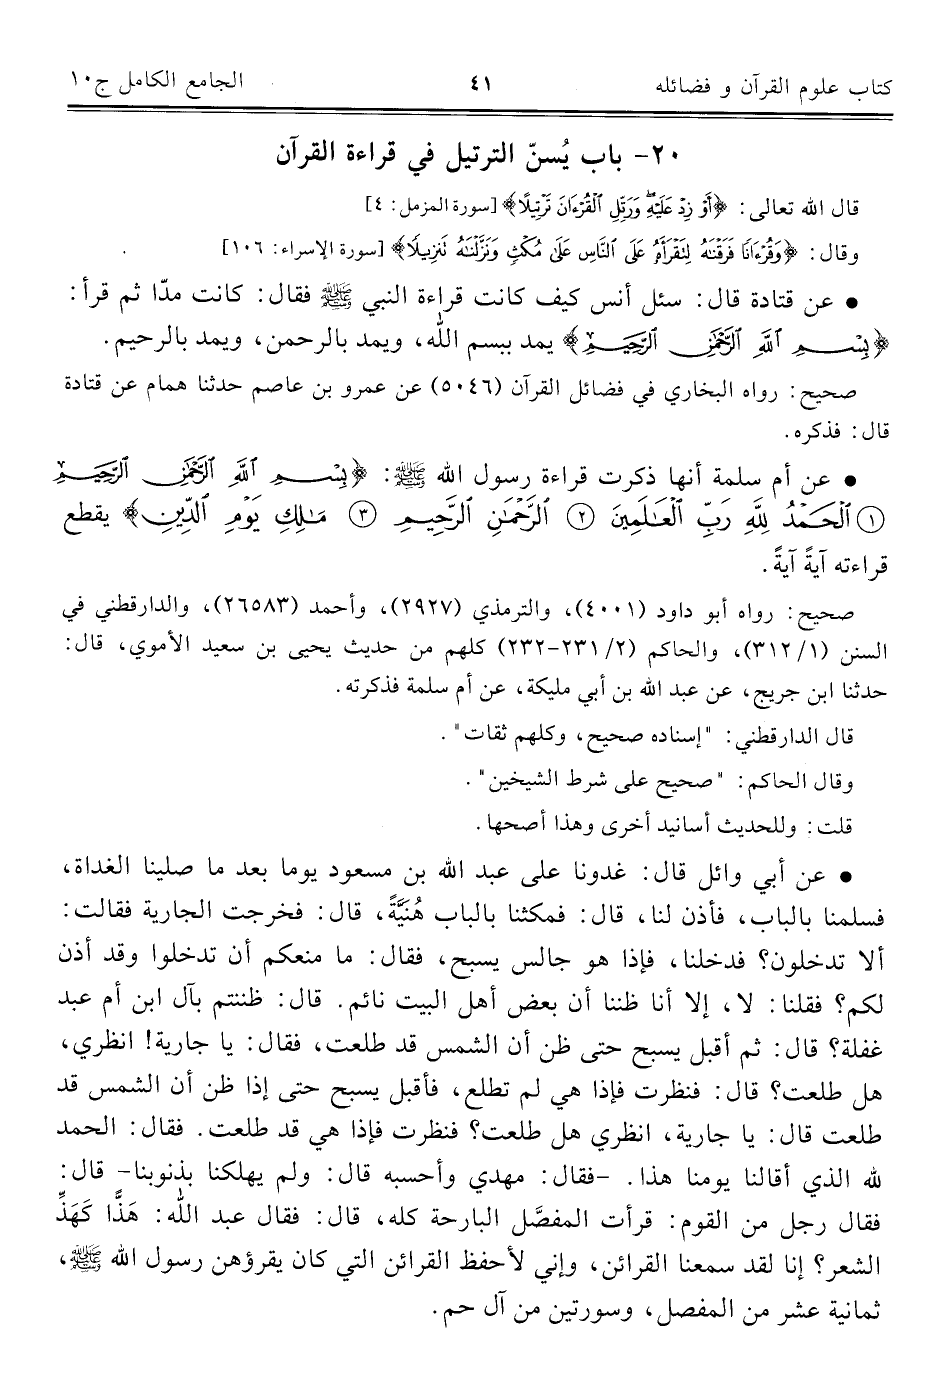 كتاب علوم القرآن و فضائله ٤١ الجامع الكامل ج١٠
٢٠- باب يُسنّ الترتيل في قراءة القرآن
قال الله تعالى: ﴿أَوْ زِدْ عَلَيْهِ وَرَتِّلِ الْقُرْءَانَ تَرْتِيلًا﴾ [سورة المزمل: ٤]
وقال: ﴿وَقُرْءَانًا فَرَقْنَاهُ لِتَقْرَأَهُ عَلَى النَّاسِ عَلَىٰ مُكْثٍ وَنَزَّلْنَاهُ تَنزِيلًا﴾ [سورة الإسراء: ١٠٦]
• عن قتادة قال: سئل أنس كيف كانت قراءة النبي ﷺ فقال: كانت مدّا ثم قرأ:
﴿بِسْمِ اللَّهِ الرَّحْمَٰنِ الرَّحِيمِ﴾ يمد ببسم الله، ويمد بالرحمن، ويمد بالرحيم.
صحيح: رواه البخاري في فضائل القرآن (٥٠٤٦) عن عمرو بن عاصم حدثنا همام عن قتادة
قال: فذكره.
• عن أم سلمة أنها ذكرت قراءة رسول الله ﷺ: ﴿بِسْمِ اللَّهِ الرَّحْمَٰنِ الرَّحِيمِ
① الْحَمْدُ لِلَّهِ رَبِّ الْعَالَمِينَ ② الرَّحْمَٰنِ الرَّحِيمِ ③ مَالِكِ يَوْمِ الدِّينِ﴾ يقطع
قراءته آيةً آيةً.
صحيح: رواه أبو داود (٤٠٠١)، والترمذي (٢٩٢٧)، وأحمد (٢٦٥٨٣)، والدارقطني في
السنن (٣١٢/١)، والحاكم (٢/ ٢٣١-٢٣٢) كلهم من حديث يحيى بن سعيد الأموي، قال:
حدثنا ابن جريج، عن عبد الله بن أبي مليكة، عن أم سلمة فذكرته.
قال الدارقطني: "إسناده صحيح، وكلهم ثقات".
وقال الحاكم: "صحيح على شرط الشيخين".
قلت: وللحديث أسانيد أخرى وهذا أصحها.
• عن أبي وائل قال: غدونا على عبد الله بن مسعود يوما بعد ما صلينا الغداة،
فسلمنا بالباب، فأذن لنا، قال: فمكثنا بالباب هُنَيَّةً، قال: فخرجت الجارية فقالت:
ألا تدخلون؟ فدخلنا، فإذا هو جالس يسبح، فقال: ما منعكم أن تدخلوا وقد أذن
لكم؟ فقلنا: لا، إلا أنا ظننا أن بعض أهل البيت نائم. قال: ظننتم بآل ابن أم عبد
غفلة؟ قال: ثم أقبل يسبح حتى ظن أن الشمس قد طلعت، فقال: يا جارية! انظري،
هل طلعت؟ قال: فنظرت فإذا هي لم تطلع، فأقبل يسبح حتى إذا ظن أن الشمس قد
طلعت قال: يا جارية، انظري هل طلعت؟ فنظرت فإذا هي قد طلعت. فقال: الحمد
لله الذي أقالنا يومنا هذا. -فقال: مهدي وأحسبه قال: ولم يهلكنا بذنوبنا- قال:
فقال رجل من القوم: قرأت المفصَّل البارحة كله، قال: فقال عبد الله: هَذًّا كَهَذِّ
الشعر؟ إنا لقد سمعنا القرائن، وإني لأحفظ القرائن التي كان يقرؤهن رسول الله ﷺ،
ثمانية عشر من المفصل، وسورتين من آل حم.